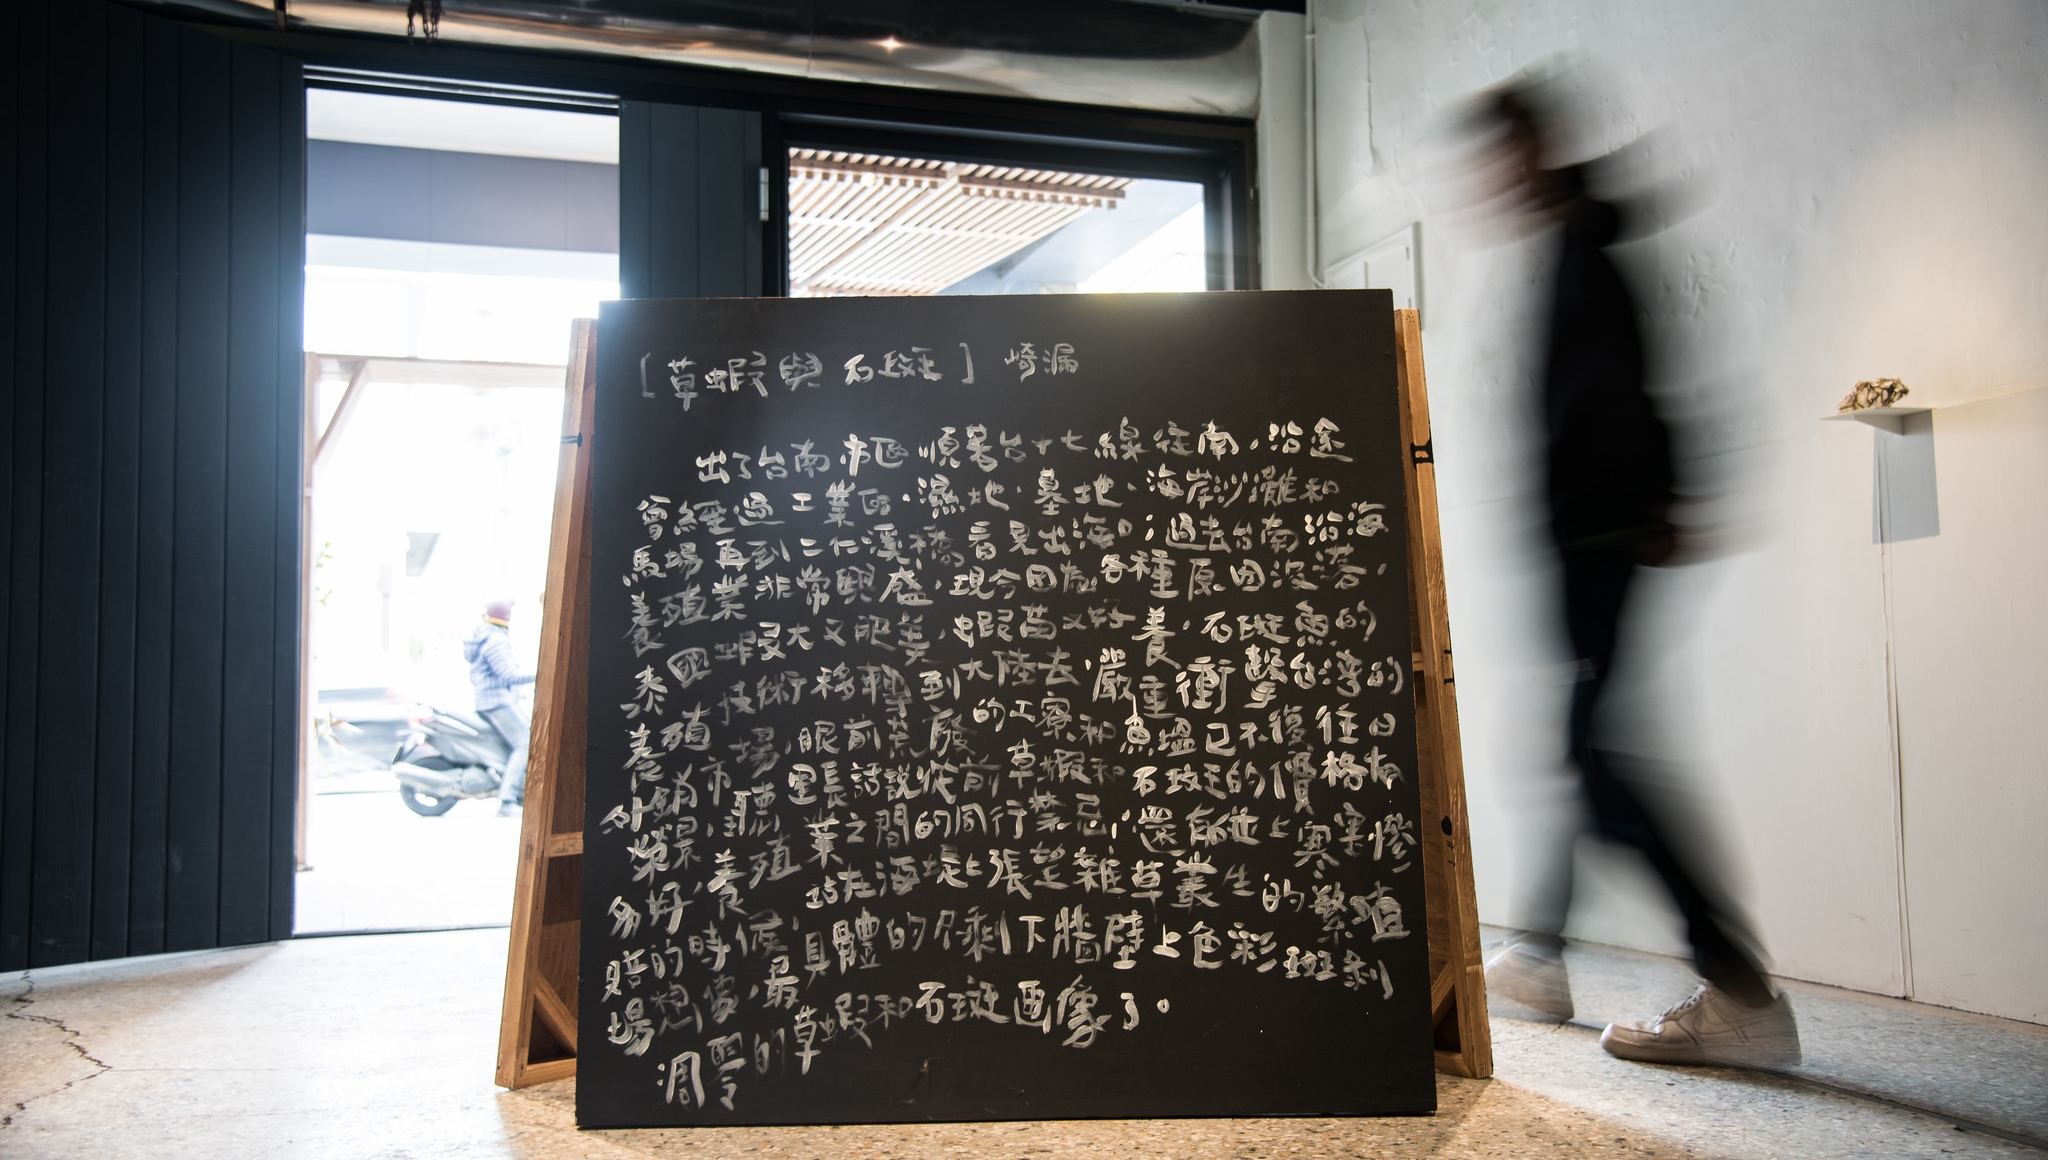 [草蝦與石斑] 崎漏
出了台南市區順著台十七線往南,沿途
曾經過工業區、濕地、墓地、海岸沙灘和
馬場再到二仁溪橋看見出海口;過去台南沿海
養殖業非常興盛,現今因為各種原因沒落,
泰國蝦大又肥美,蝦苗又好養,石斑魚的
養殖技術移轉到大陸去,嚴重衝擊台灣的
外銷市場,眼前荒廢的工寮和魚塭已不復往日
榮景,聽里長話說從前草蝦和石斑的價格有
多好,養殖業之間的同行禁忌,還有碰上寒害慘
賠的時候,站在海堤上張望雜草叢生的繁殖
場想像,最具體的只剩下牆壁上色彩斑剝
凋零的草蝦和石斑画像了。